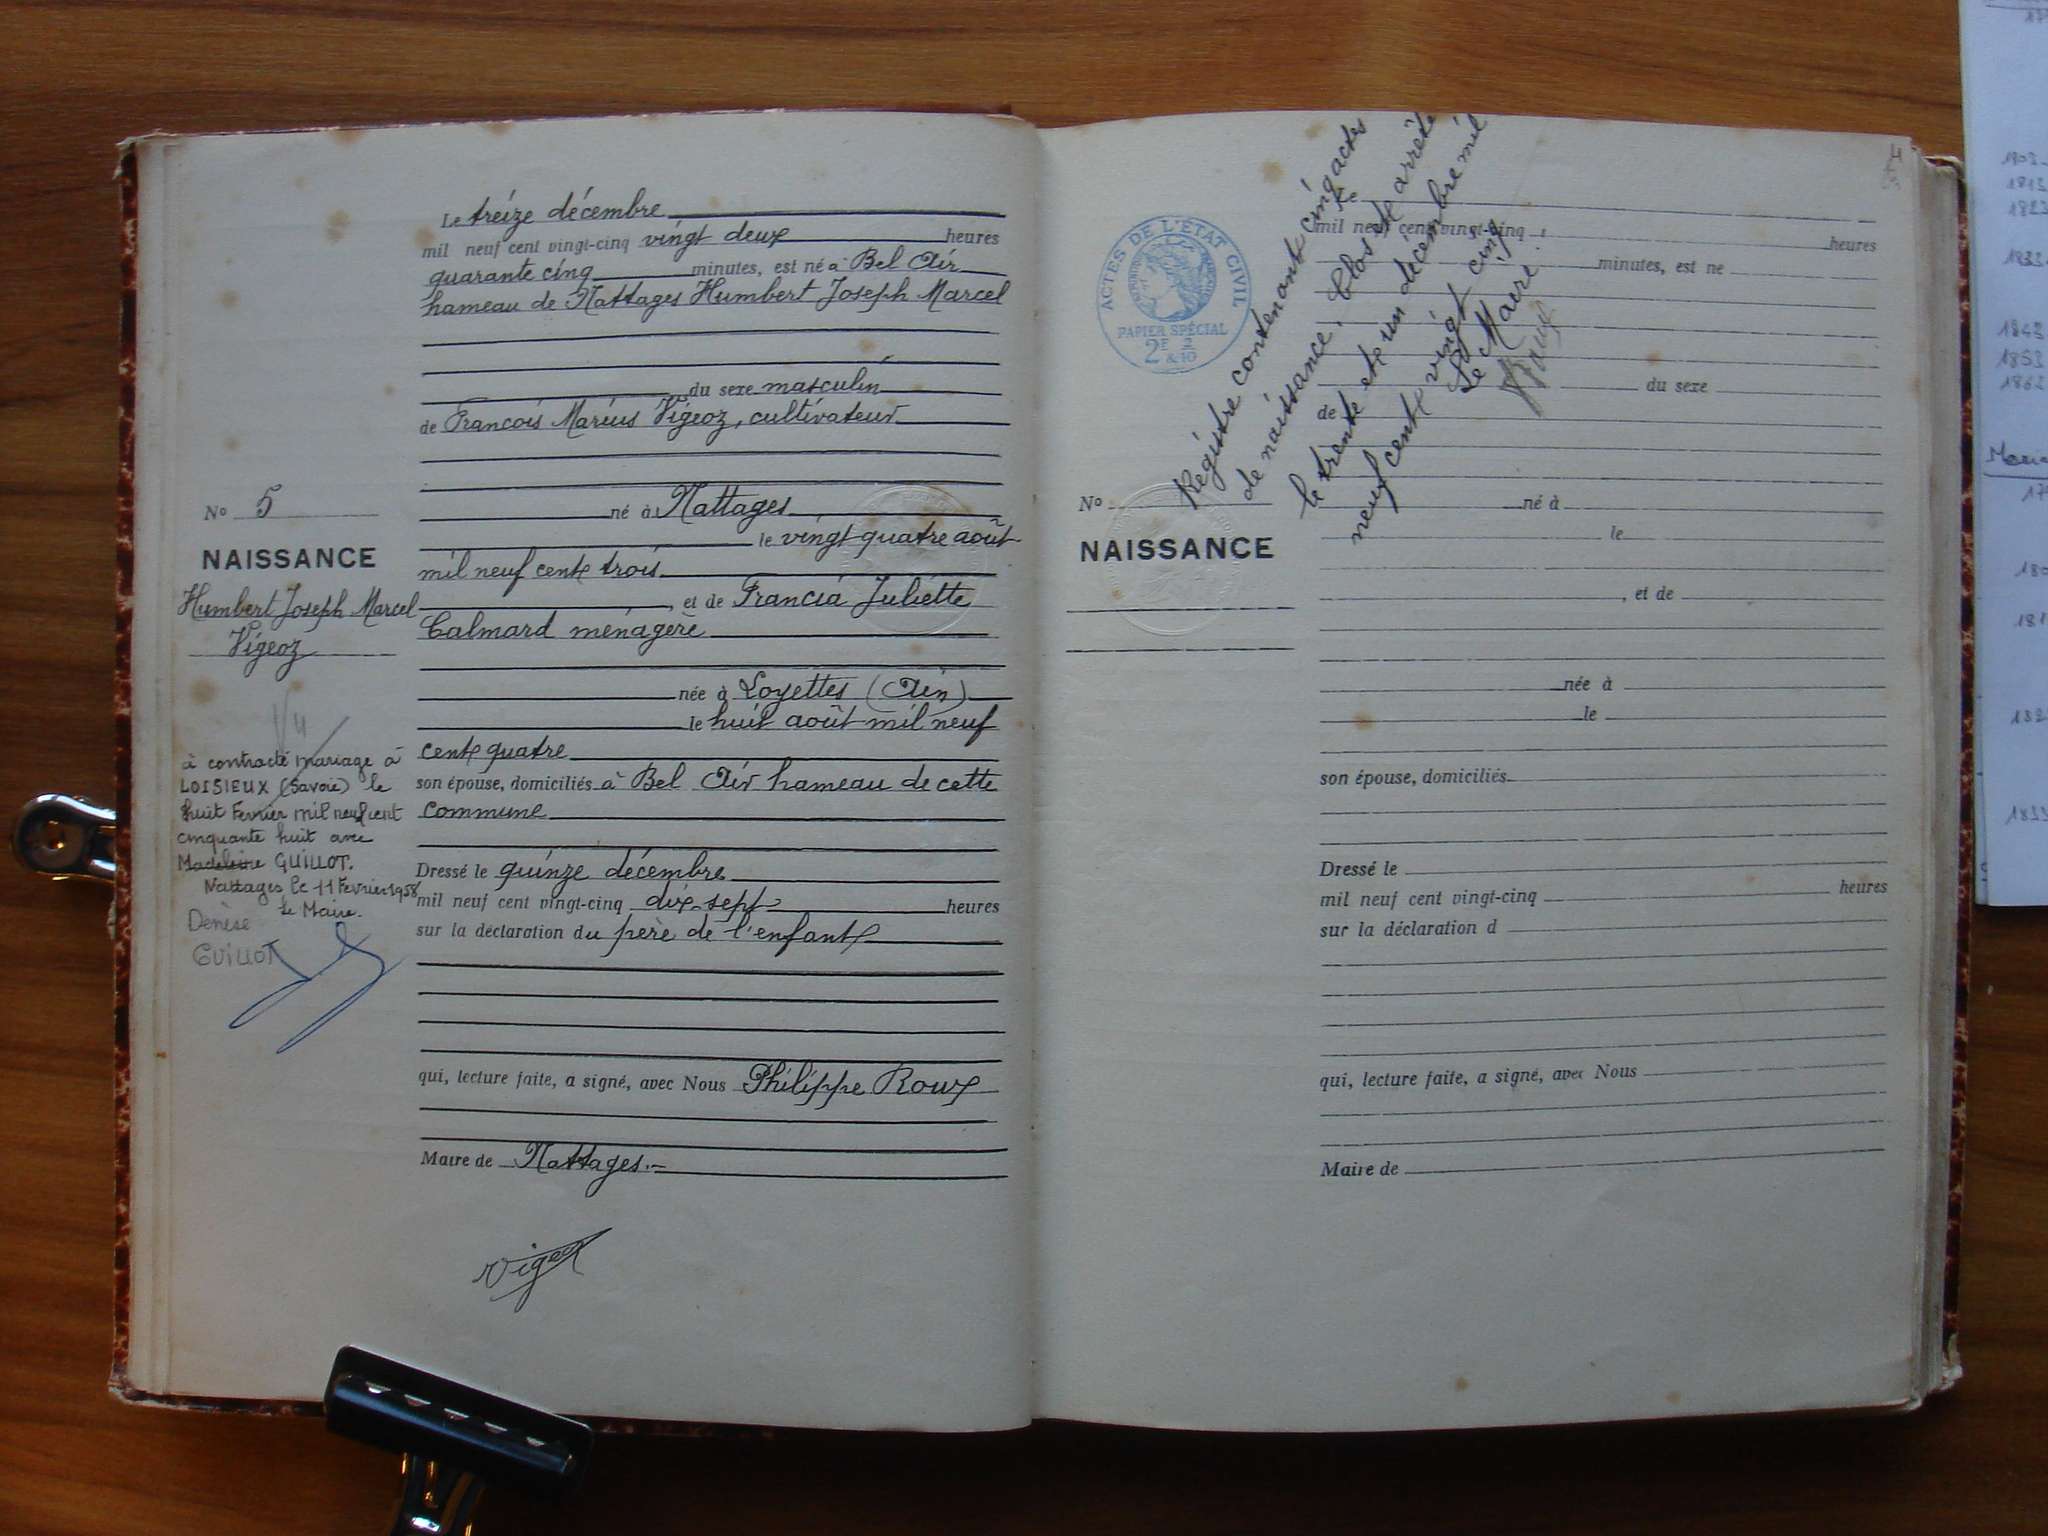 Le treize décembre
mil neuf cent vingt-cinq vingt deux heures
quarante cinq minutes, est né à Bel Air
hameau de Nattages Humbert Joseph Marcel
du sexe masculin
de François Marius Vigeoz, cultivateur
né à Nattages
le vingt quatre août
mil neuf cent trois
, et de Francia Juliette
Calmard ménagère
née à Loyettes (Ain)
le huit août mil neuf
cent quatre
son épouse, domiciliés à Bel Air hameau de cette
commune
Dressé le quinze décembre
mil neuf cent vingt-cinq dix-sept heures
sur la déclaration du père de l'enfant
qui, lecture faite, a signé, avec Nous Philippe Roux
Maire de Nattages.-
Vigeoz
No 5
NAISSANCE
Humbert Joseph Marcel
Vigeoz
à contracté mariage à
LOISIEUX (Savoie) le
huit Fevrier mil neuf cent
cinquante huit avec
Madeleine GUILLOT.
Nattages le 11 Fevrier 1958
le Maire.
Denèse
GUILLOT
ACTES DE L'ÉTAT CIVIL
PAPIER SPÉCIAL
2F 2
&10
Registre contenant cinq actes
de naissance. Clos et arrêté
le trente et un décembre mil
neuf cent vingt cinq
Le Maire
Le
mil neuf cent vingt-cinq heures
minutes, est ne
du sexe
de
No
NAISSANCE
né à
le
, et de
née à
le
son épouse, domiciliés
Dressé le
mil neuf cent vingt-cinq heures
sur la déclaration d
qui, lecture faite, a signé, avec Nous
Maire de
1813
1843
1853